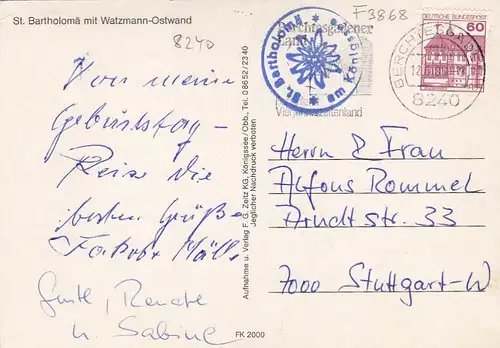 St. Bartholomä mit Watzmann-Ostwand
8240
F3868
Von meiner
Geburtstag-
Reise die
besten Grüße
Jakob
Gustl, Renate
u. Sabine
Aufnahme u. Verlag F. G. Zeitz KG, Königssee/Obb., Tel. 08652/2340
Jeglicher Nachdruck verboten
FK 2000
St. Bartholomä am Königssee
Berchtesgadener
Land
Vierjahreszeitenland
DEUTSCHE BUNDESPOST
60
BERCHTESGADEN
8240
Herrn & Frau
Alfons Rommel
Arndtstr. 33
7000 Stuttgart-W